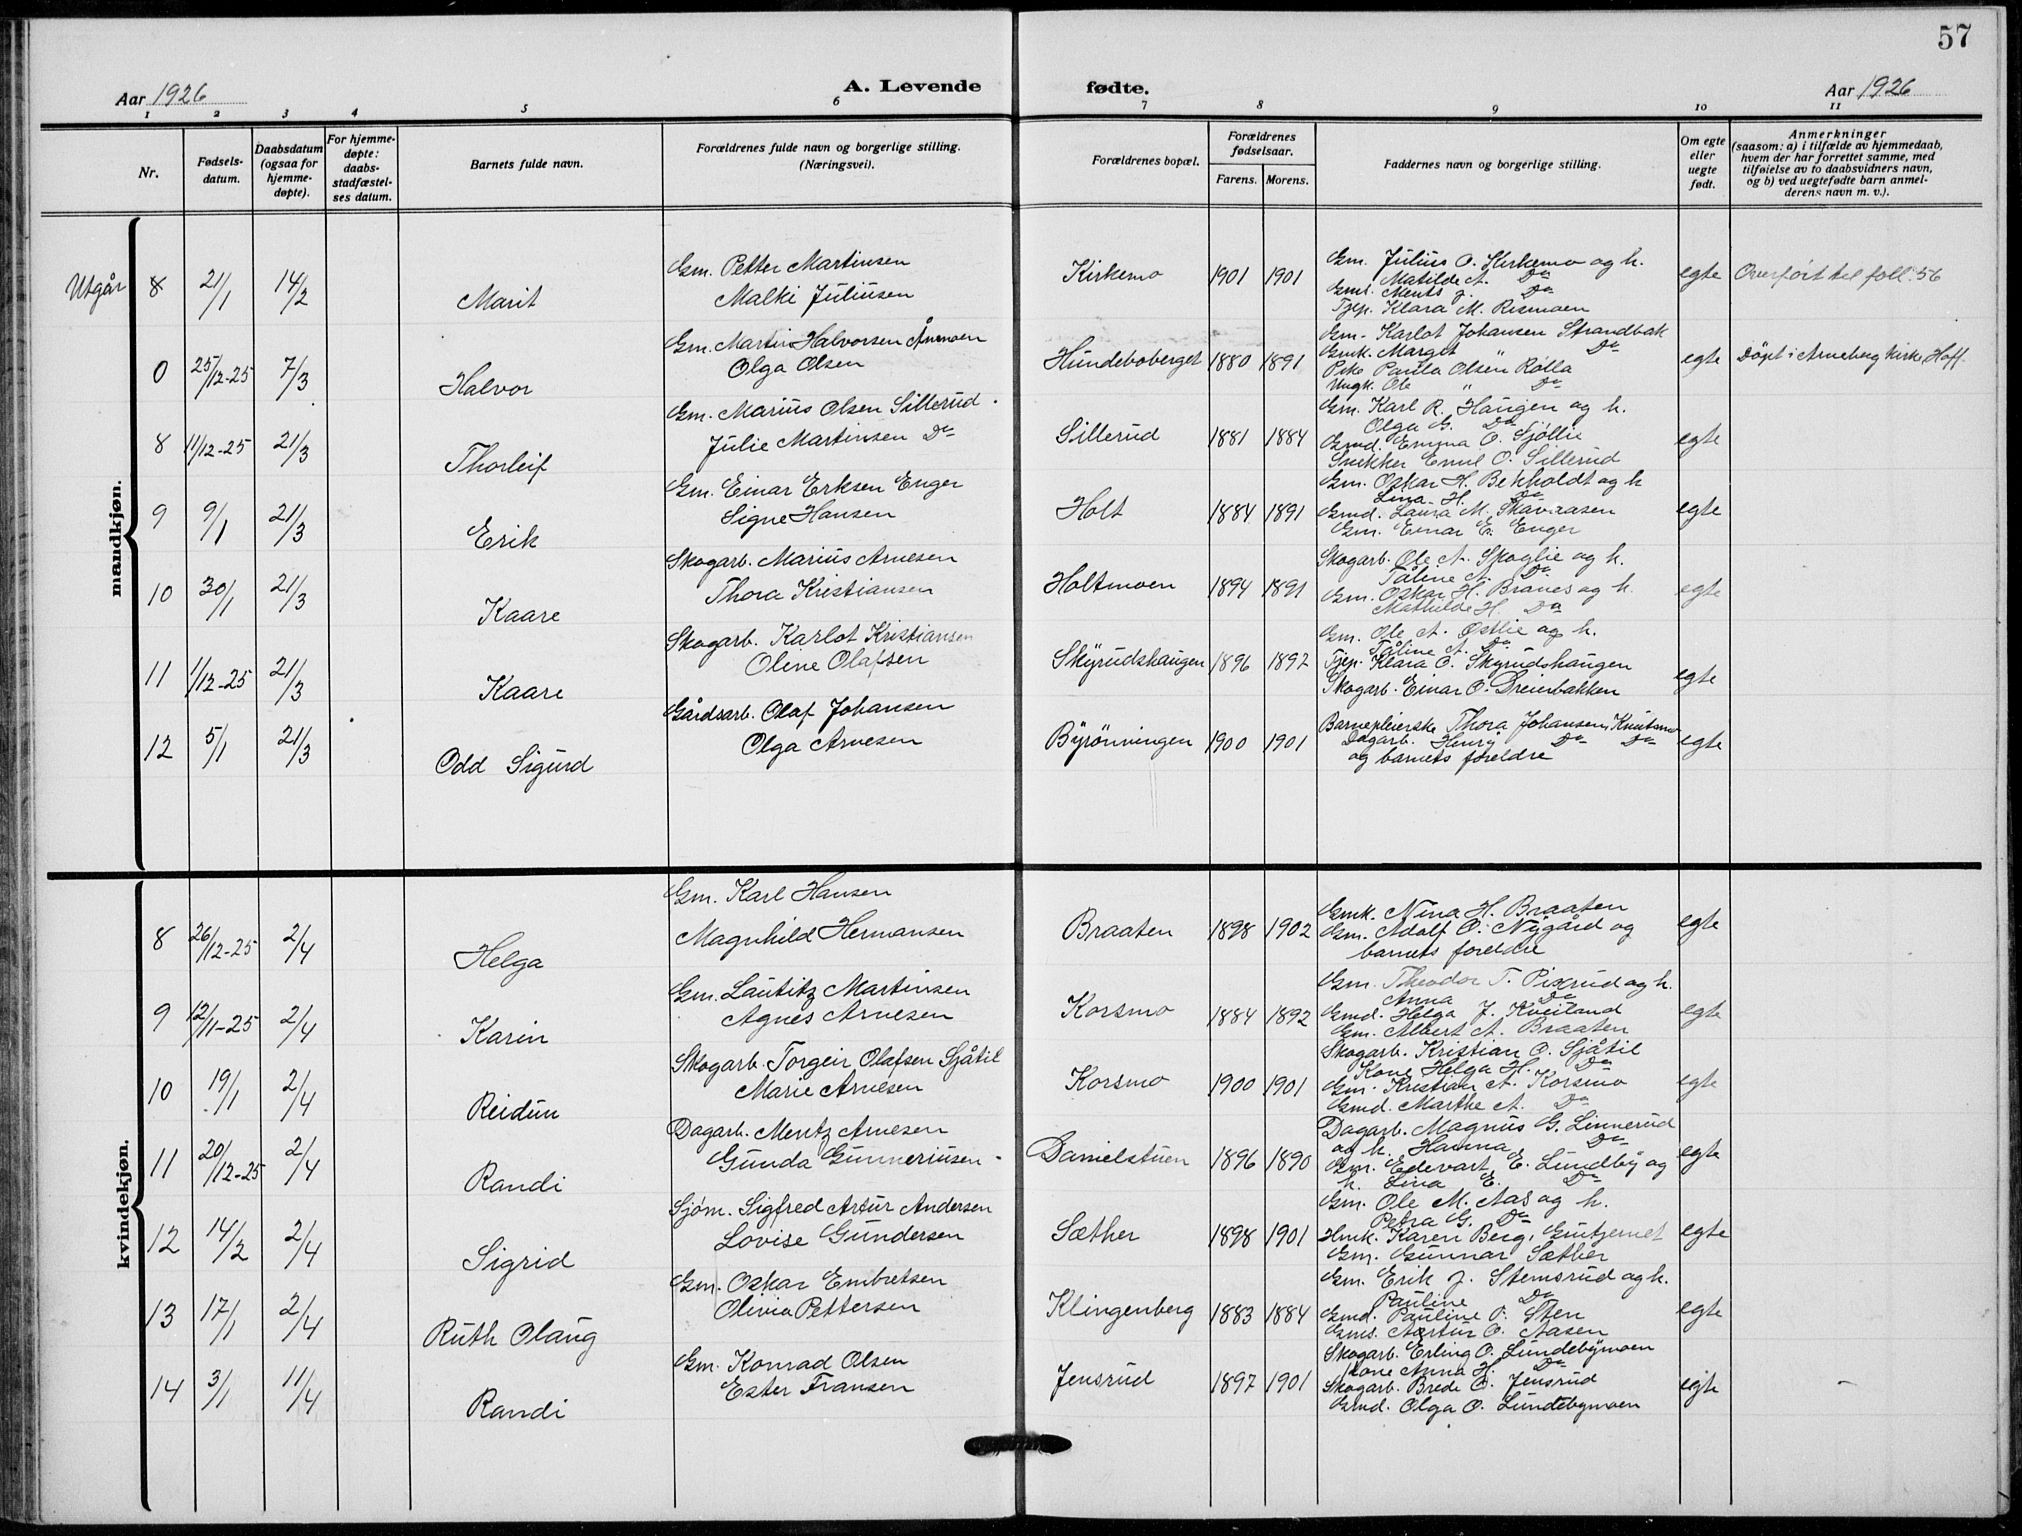 57
Aar 1926
A. Levende fødte.
Aar 1926
1 2 3 4 5 6 7 8 9 10 11
Nr.
Fødsels-
datum.
Daabsdatum
(ogsaa for
hjemme-
døpte).
For hjemme-
døpte:
daabs-
stadfæstel-
ses datum.
Barnets fulde navn.
Forældrenes fulde navn og borgerlige stilling.
(Næringsvei).
Forældrenes bopæl.
Forældrenes
fødselsaar.
Farens. Morens.
Faddernes navn og borgerlige stilling.
Om egte
eller
uegte
født.
Anmerkninger
(saasom: a) i tilfælde av hjemmedaab,
hvem der har forrettet samme, med
tilføielse av to daabsvidners navn,
og b) ved uegtefødte barn anmel-
derens navn m. v.).
mandkjøn.
Utgår 8 21/1 14/2 Marit
Gm. Petter Martinsen
Malki Juliusen
Kirkemo 1901 1901
Gm. Julius O. Kirkemo og h.
Matilde A. Do
Gms. Ments J. Do
Tjep. Klara M. Rismoen
egte Overført til foll. 56
0 25/12-25 7/3 Halvor
Gm. Martin Halvorsen Årnmoen
Olga Olsen
Hundeboberget 1880 1891
Gm. Karlot Johansen Strandbak
Gmk. Margit " Do
Pike Paula Olsen Rølla
Ungk. Ole " Do
egte Döpt i Arneberg kirke, Hoff.
8 11/12-25 21/3 Thorleif
Gm. Marius Olsen Sillerud.
Julie Martinsen Do
Sillerud 1881 1884
Gm. Karl R. Haugen og h.
Olga G. Do
Gmd. Emma O. Sjøllie
Snekker Emil O. Sillerud
egte
9 9/1 21/3 Erik
Gm. Einar Erksen Enger
Signe Hansen
Holt 1884 1891
Gm. Oskar H. Bekholdt og h
Lina H. Do
Gmd. Laura M. Skavaasen
Gm. Einar E. Enger
egte
10 30/1 21/3 Kaare
Skogarb. Marius Arnesen
Thora Kristiansen
Holtmoen 1894 1891
Skogarb. Ole A. Skoglie og h.
Tåline A. Do
Gm. Oskar H. Branes og h.
Mathilde H. Do
egte
11 1/12-25 21/3 Kaare
Skogarb. Karlot Kristiansen
Olene Olafsen
Skyrudshaugen 1896 1892
Gm. Ole A. Østlie og h.
Tåline A. Do
Tjep. Klara O. Skyrudshaugen
Skogarb. Einar O. Dreierbakken
egte
12 5/1 21/3 Odd Sigurd
Gårdsarb. Olaf Johansen
Olga Arnesen
Byrönningen 1900 1901
Barnepleierske Thora Johansen, Knutsmo
Dagarb. Henry Do Do
og barnets foreldre
egte
kvindekjøn.
8 26/12-25 2/4 Helga
Gm. Karl Hansen
Magnhild Hermansen
Braaten 1898 1902
Gmk. Nina H. Braaten
Gm. Adolf O. Nygård og
barnets foreldre
egte
9 12/11-25 2/4 Karin
Gm. Lautitz Martinsen
Agnes Arnesen
Korsmo 1884 1892
Gm. Theodor T. Pixrud og h.
Anna Do
Gmd. Helga J. Kveiland
Gm. Albert A. Braaten
egte
10 19/1 2/4 Reidun
Skogarb. Torgeir Olafsen Sjåtil
Marie Arnesen
Korsmo 1900 1901
Skogarb. Kristian O. Sjåtil
Kone Helga H. Do
Gm. Kristian A. Korsmo
Gmd. Marthe A. Do
egte
11 20/12-25 2/4 Randi
Dagarb. Mentz Arnesen
Gunda Gunneriusen
Danielstuen 1896 1890
Dagarb. Magnus G. Linnerud
og h. Hanna Do
Gm. Edevart E. Lundby og
h. Lina E. Do
egte
12 14/2 2/4 Sigrid
Sjøm. Sigfred Artur Andersen
Lovise Gundersen
Sæther 1898 1901
Gm. Ole M. Aas og h.
Petra G. Do
Hmk. Karen Berg, Gruetjernet
Gm. Gunnar Sæther
egte
13 17/1 2/4 Ruth Olaug
Gm. Oskar Embretsen
Olivia Pettersen
Klingenberg 1883 1884
Gm. Erik J. Stemsrud og h.
Pauline Do
Gmd. Pauline P. Sten
Gms. Artur O. Aasen
egte
14 3/1 11/4 Randi
Gm. Konrad Olsen
Ester Fransen
Jensrud 1897 1901
Skogarb. Erling O. Lundebymoen
Kone Anna H. Do
Skogarb. Brede O. Jensrud
Gmd. Olga O. Lundebymoen
egte